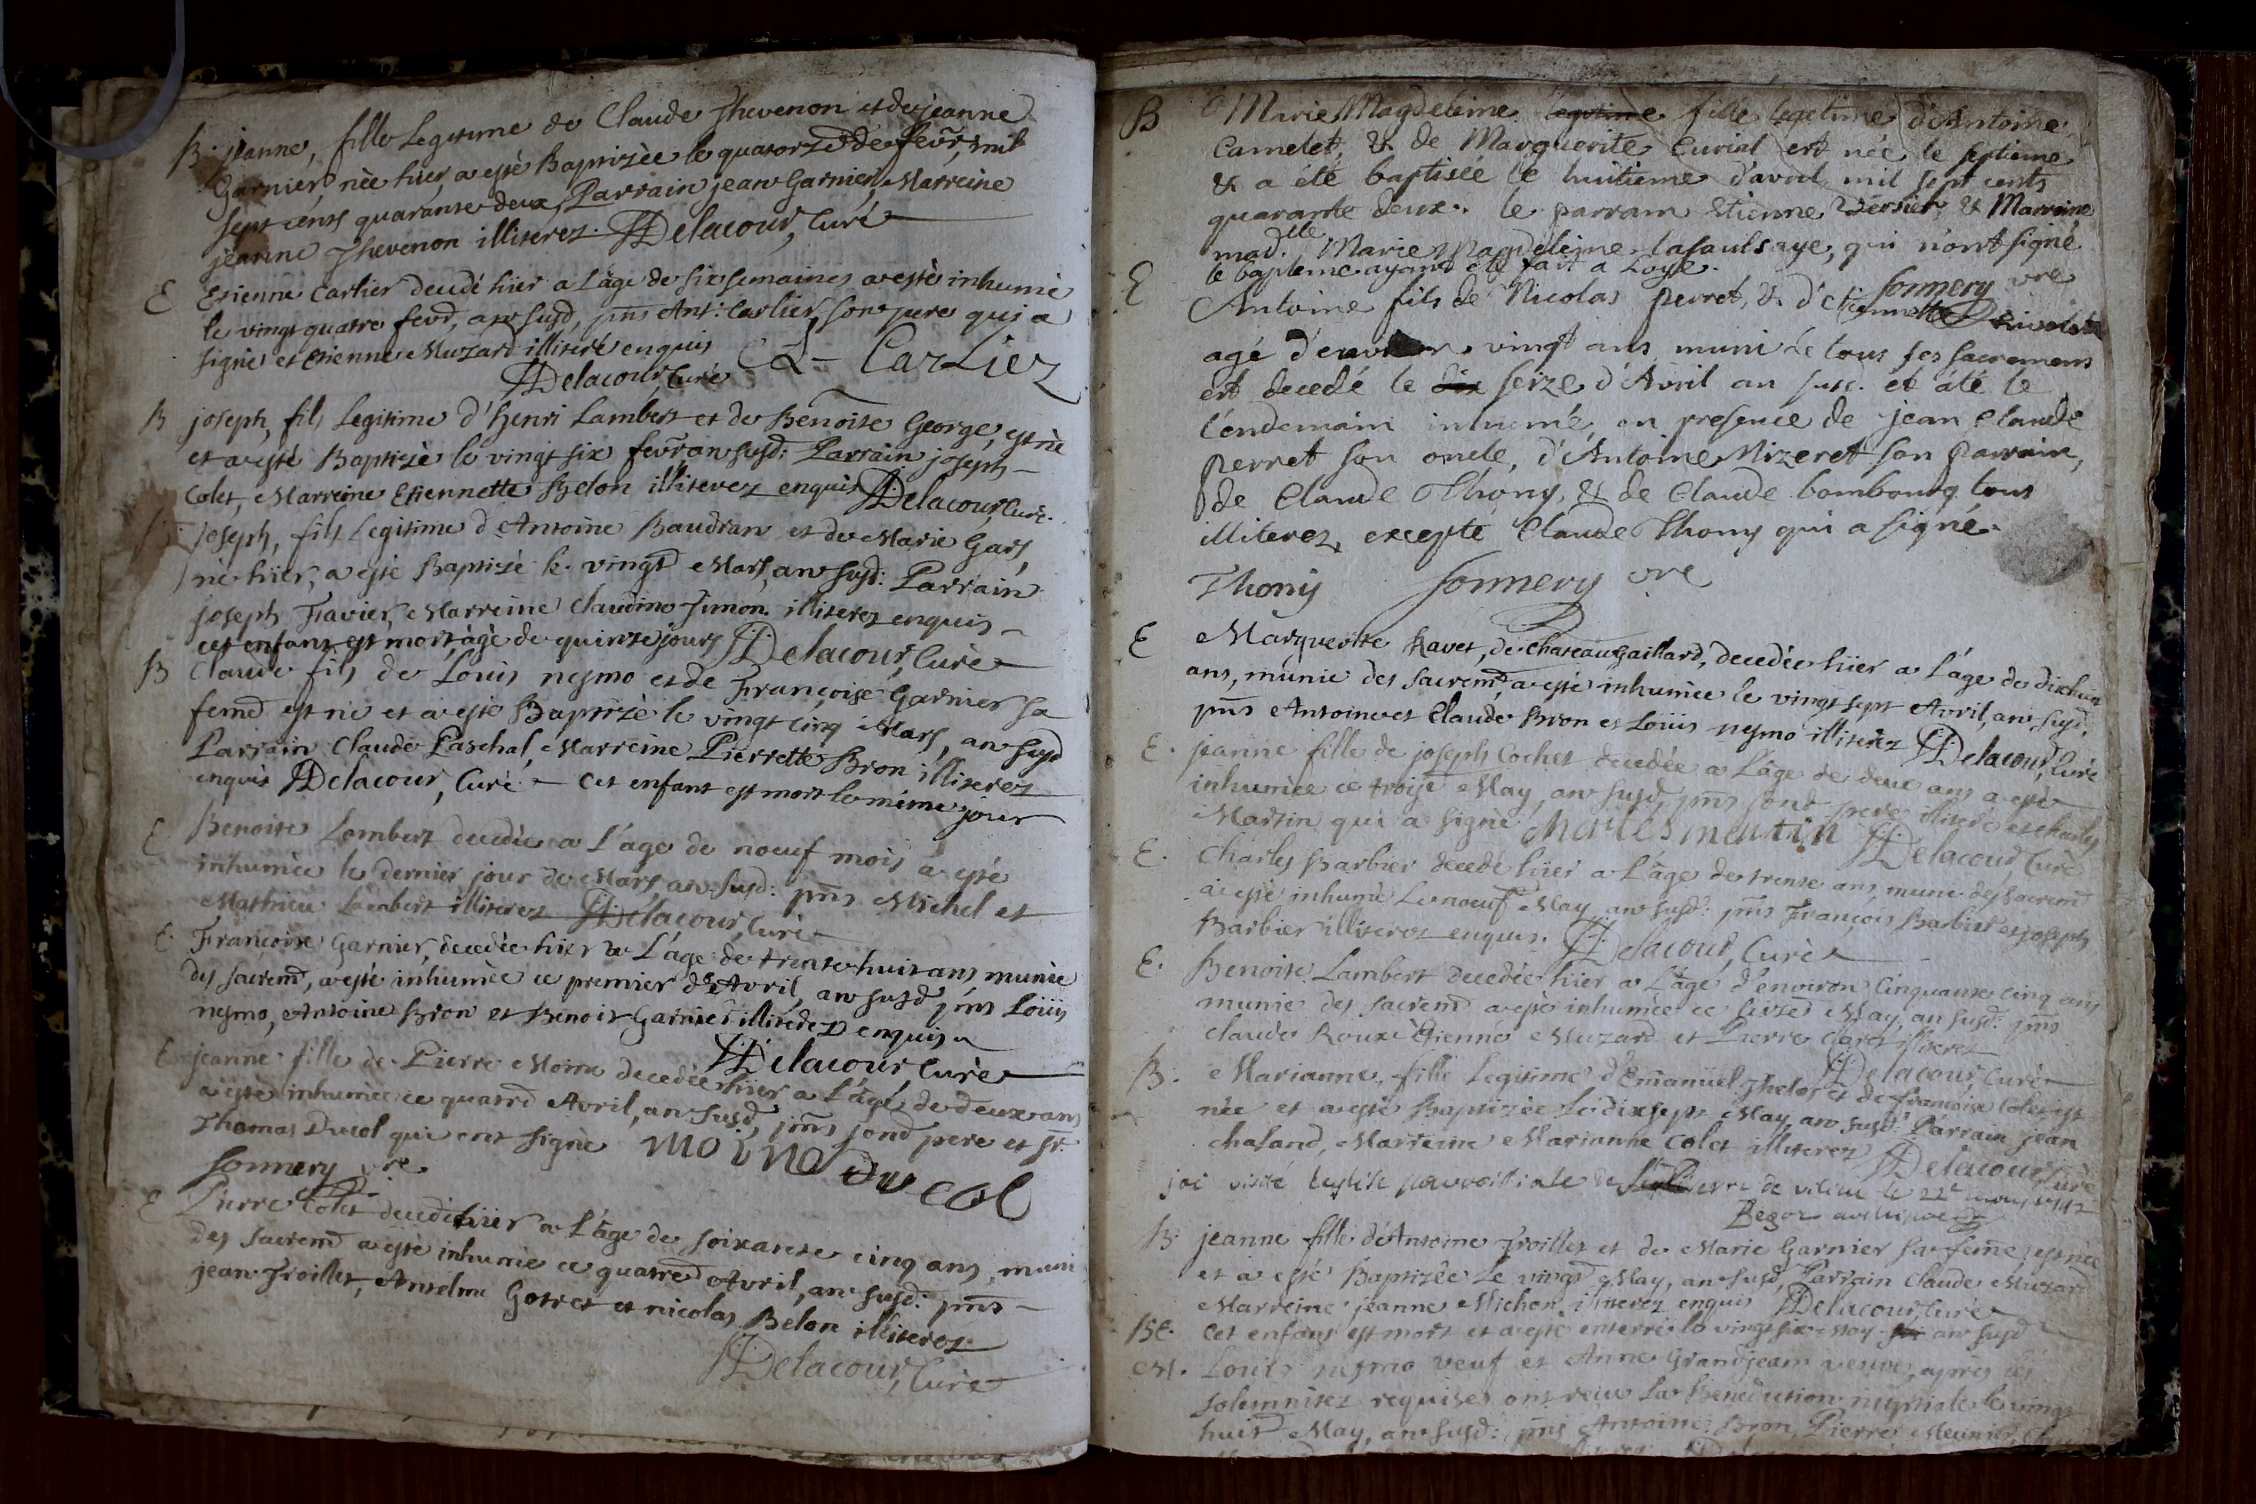 B. jeanne, fille Legitime de Claude Thevenon et de jeanne
Garnier née hier, a esté Baptizèe le quatorzе de fevr, mil
sept cents quarante deux, Parrain jean Garnier, Marreine
jeanne Thevenon illiterez. Delacour, Curé
E Etienne Carlier decedé hier a L'âge de six semaines a esté inhumé
le vingt quatre fevr, an susd, pns Ant: Carlier, son pere qui a
signé et Etienne Muzard illiteré enquis
A - CarLiez
Delacour, Curé
B joseph, fils Legitime d'henri Lambert et de Benoite George, est né
et a esté Baptizé le vingt six fevr an susd: Parrain joseph
Colet, Marreine Etiennette Belon illiterez enquis Delacour, Curé.
joseph, fils Legitime d'Antoine Baudran et de Marie Gars,
né hier, a esté Baptizé le vingt Mars, an susd: Parrain
joseph Favier, Marreine Claudine Simon illiterez enquis
cet enfant est mort agé de quinze jours Delacour, Curé
B Claude fils de Louis nesmo et de Françoise Garnier sa
feme est né et a esté Baptizé le vingt cinq Mars, an susd
Parrain Claude Paschal, Marreine Pierrette Bron illiterez
enquis Delacour, Curé. Cet enfant est mort le méme jour
E Benoite Lambert decedée a L'âge de noeuf mois a esté
inhumée le dernier jour de Mars, an susd: pns Michel et
Mathieu Lambert illiterez Delacour, Curé
E. Françoise Garnier, decedée hier a L'âge de trente huit ans munie
des sacrem, a esté inhumèe ce premier d'Avril, an susd pns Loüis
nesmo, Antoine Bron et Benoit Garnier illiterez enquis
Delacour Curé
E jeanne fille de Pierre Moine decedèe hier a L'âge de deux ans
a esté inhumée ce quatre Avril, an susd, pns sond pere et Sr.
Thomas Ducol qui ont signé MOINE DUCOL
Sonnery vre
E Pierre Colet decedé hier a L'âge de soixante cinq ans, muni
des sacrem a esté inhumé ce quatre Avril, an susd: pns
jean Troillet, Antelme Gotret et nicolas Belon illiterez
Delacour, Curé
B Marie Magdeleine legitime fille legetime d'Antoine
Camelet, & de Marguerite Curial est née le septieme
& a été baptisée le huitieme d'avril mil sept cents
quarante deux. le parrain Etienne Versier, & Marraine
madlle. Marie Magdeleine Lafaulsaye, qui n'ont signé
le bapteme ayant été fait a Loye.
Sonnery vre
E Antoine fils de Nicolas Perret, & d'Etiennette
agé d'environ vingt ans muni de tous ses sacremens
est decedé le dix seize d'Avril an susd. et áté le
l'endemain inhumé, en presence de jean Claude
Perret son oncle, d'Antoine Mizeret son parrain,
de Claude Thony, & de Claude bombourg tous
illiterez, excepté Claude Thony qui a signé.
Thony Sonnery vre
E Marguerite Ravet, de chateaugaillard, decedée hier a L'âge de dixhuit
ans, munie des sacrem, a esté inhumèe le vingt sept Avril, an susd,
pns Antoine et Claude Bron et Loüis nesmo illiterez Delacour, Curé
E. jeanne fille de joseph Cochet decedée a L'âge de deux ans a esté
inhumèe ce trois May, an susd, pns sond pere illiteré et charles
Martin qui a signé charles martin Delacour, Curé
E. Charles Barbier decedé hier a L'âge de trente ans, muni des sacrem
a esté inhumé Le noeuf May an susd: pns François Barbier et joseph
Barbier illiterez enquis. Delacour, Curé
E. Benoite Lambert decedée hier a L'âge d'environ Cinquante cinq ans
munie des sacrem a esté inhumèe ce seize May, an susd: pns
Claude Roux Etienne Muzard et Pierre Garet illiterez
Delacour, Curé
B. Marianne, fille Legitime d'Emanuel Thelot et de françoise Colet est
née et a esté Baptizèe Le dix sept May, an susd: Parrain jean
chaland, Marreine Marianne Colet illiterez Delacour, Curé
jai visité leglise parroissiale de st Pierre de vilieu le 22e may 1742
B. jeanne fille d'Antoine Troillet et de Marie Garnier sa feme, est née
et a esté Baptizèe Le vingt May, an susd, Parrain Claude Muzard
Marreine jeanne Michon, illiterez enquis Delacour, Curé
BE. Cet enfant est mort et a esté enterré le vingt six May an susd
M. Louis nesmo veuf et Anne Grandjean veuve, apres les
solemnitez requises ont reçu La Benediction nuptiale le vingt
huit May, an susd: pns Antoine Bron, Pierre Meunier,